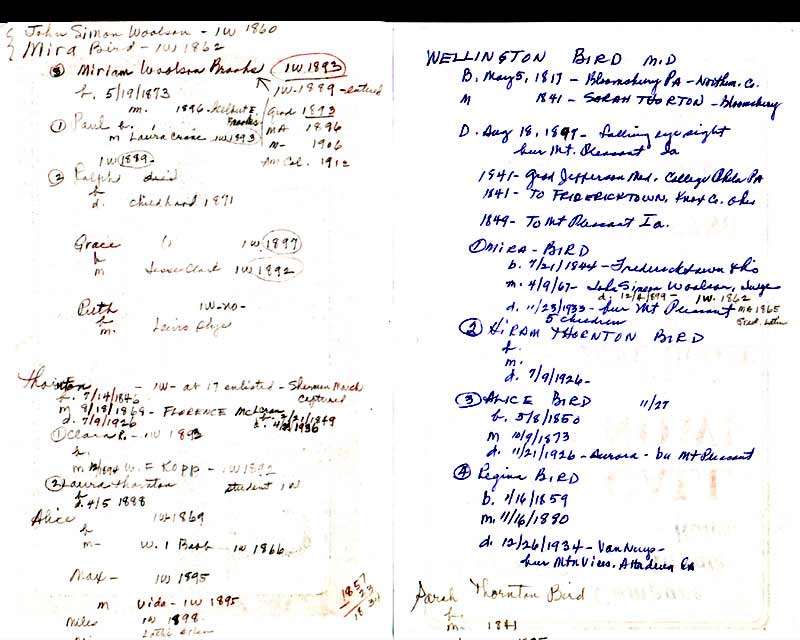 John Simon Woolson - IW 1860
Mira Bird - IW 1862
③ Miriam Woolson Brooks IW 1893
IW-1889 - entered
b. 5/19/1873
m. 1896 -
Grad 1893
① Paul b.
MA 1896
m Laura Crane IW 1893
m- 1906
1912
IW 1889
② Ralph died
b
d. childhood 1871
Grace IW 1897
b
m Jesse Clark IW 1892
Ruth IW-no-
b.
m. Lewis
Thornton - IW- at 17 enlisted - Sherman March
captured
b. 7/14/1846
m 9/18/1869 - FLORENCE
d. 7/9/1926
① Clara P. - IW 1893
b.
m W. F KOPP - IW 1892
② Laura Thornton student IW
b
d. 4/5 1898
Alice IW 1869
b
m- W. I Babb IW 1866
Max - IW 1895
m Vida - IW 1895
Miles IW 1898
1857
23
WELLINGTON BIRD M.D
B. May 5, 1817 - Bloomsburg PA - Northm. Co.
M 1841 - SARAH THORTON - Bloomsburg
D. Aug 18, 1897 - failing eye sight
bur Mt. Pleasant Ia
1841 - grad Jefferson Med. College Phila PA
1841 - TO FREDERICKTOWN, Knox Co. Ohio
1849 - To Mt Pleasant Ia.
① MIRA - BIRD
b. 7/21/1844 - Fredericktown Ohio
m. 4/9/67 - John Simon Woolson, Judge
d. 12/4/1899 - IW. 1862
d. 11/23/1933 - bur Mt Pleasant MA 1865
5 children
② HIRAM THORNTON BIRD
b.
m.
d. 7/9/1926 -
③ ALICE BIRD 11/27
b. 5/8/1850
M 10/9/1873
d. 11/21/1926 - Aurora - bu Mt Pleasant
④ Regina BIRD
b. 1/16/1859
m. 11/16/1880
d. 12/26/1934 - Van Nuys -
bur Mtn View, Altadena Ca
Sarah Thornton Bird
b.
m. 1841